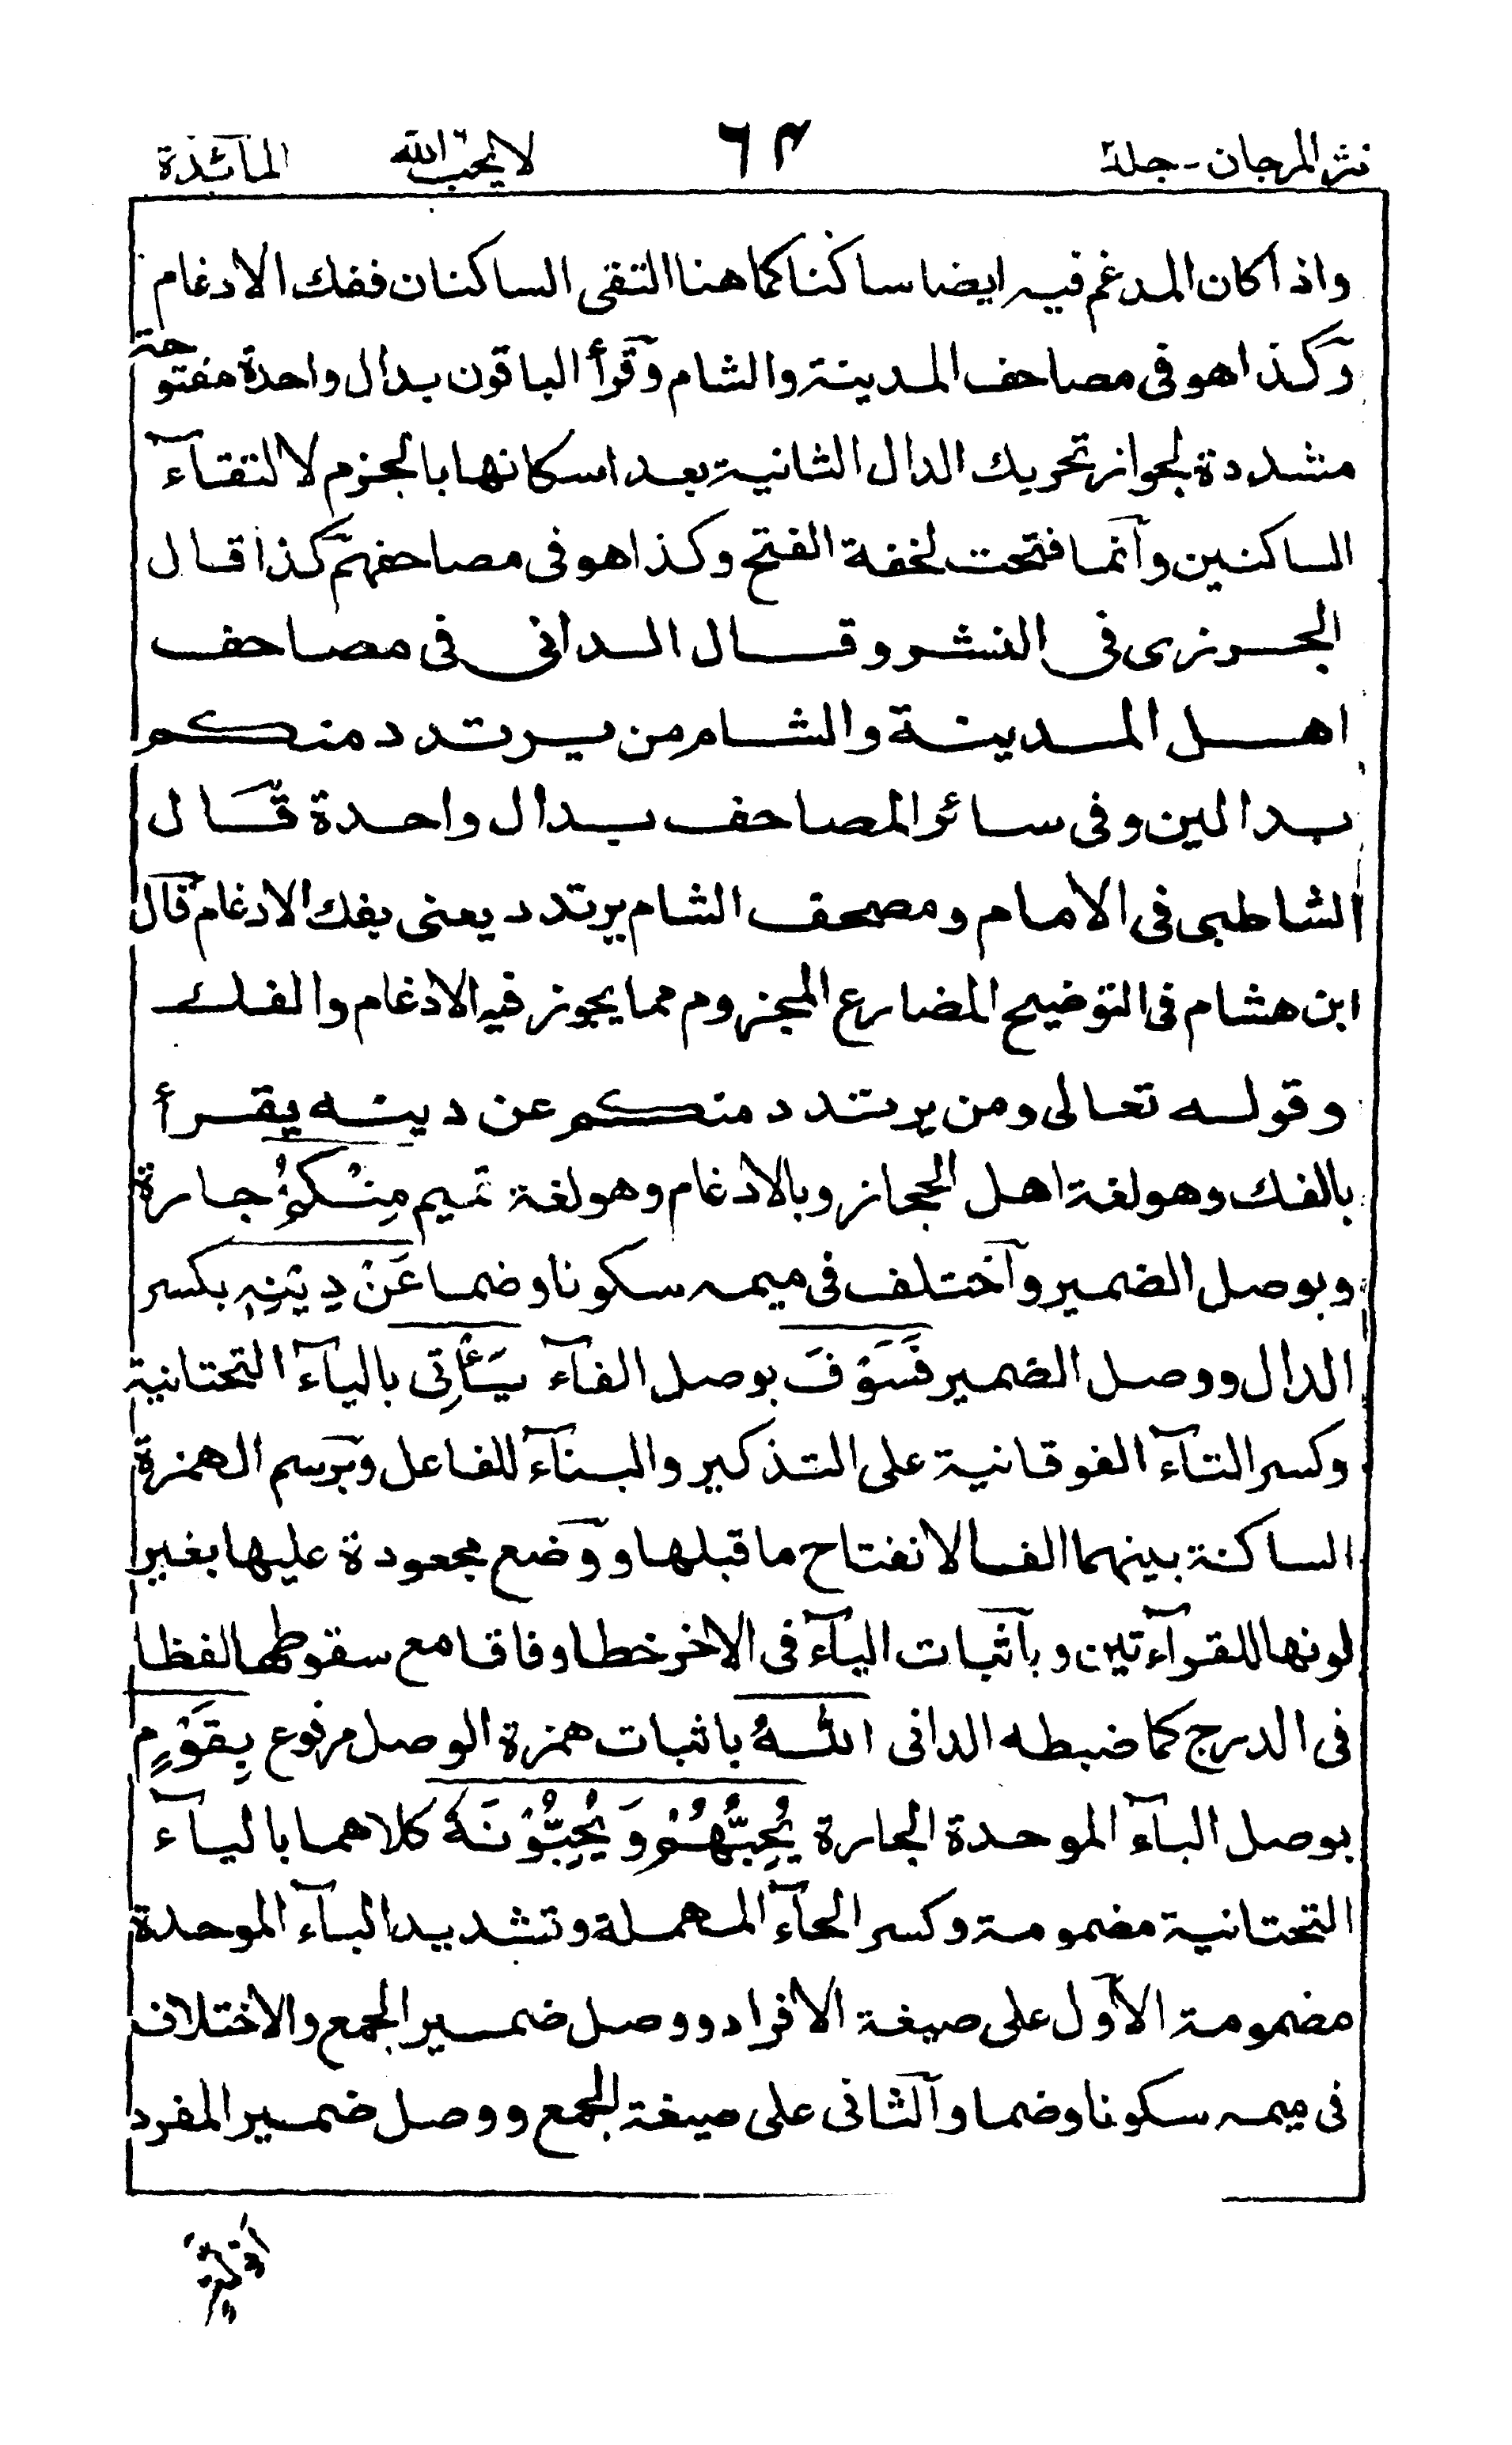 نثر المرجان - جلد٢ ٦٣ لا يحب الله المآئدة
واذا كان المدغم فيه ايضا ساكنا كما هنا التقى الساكنان ففك الادغام
وكذا هو فى مصاحف المدينة والشام وقرأ الباقون بدال واحدة مفتوحة
مشددة لجواز تحريك الدال الثانية بعد اسكانها بالجزم لالتقآء
الساكنين وانما فتحت لخفة الفتح وكذا هو فى مصاحفهم كذا قال
الجزرى فى النشر وقال الدانى فى مصاحف
اهل المدينة والشام من يرتدد منكم
بدالين وفى سائر المصاحف بدال واحدة قال
الشاطبى فى الامام ومصحف الشام يرتدد يعنى بفك الادغام قال
ابن هشام فى التوضيح المضارع المجزوم مما يجوز فيه الادغام والفك
وقوله تعالى ومن يرتدد منكم عن دينه يقرأ
بالفك وهو لغة اهل الحجاز وبالادغام وهو لغة تميم مِنْكُمْ جارة
وبوصل الضمير واختلف فى ميمه سكونا وضما عَنْ دِيْنِهٖ بكسر
الدال ووصل الضمير فَسَوْفَ بوصل الفآء يَأْتِى باليآء التحتانية
وكسر التآء الفوقانية على التذكير والبنآء للفاعل وبرسم الهمزة
الساكنة بينهما الفا لانفتاح ما قبلها ووضع مجعودة عليها بغير
لونها للقرآءتين وباثبات اليآء فى الاخر خطا وفاقا مع سقوطها لفظا
فى الدرج كما ضبطه الدانى اللّٰهُ باثبات همزة الوصل مرفوع بِقَوْمٍ
بوصل البآء الموحدة الجارة يُحِبُّهُمْ وَيُحِبُّوْنَهٗ كلاهما باليآء
التحتانية مضمومة وكسر الحآء المهملة وتشديد البآء الموحدة
مضمومة الاول على صيغة الافراد ووصل ضمير الجمع والاختلاف
فى ميمه سكونا وضما والثانى على صيغة الجمع ووصل ضمير المفرد